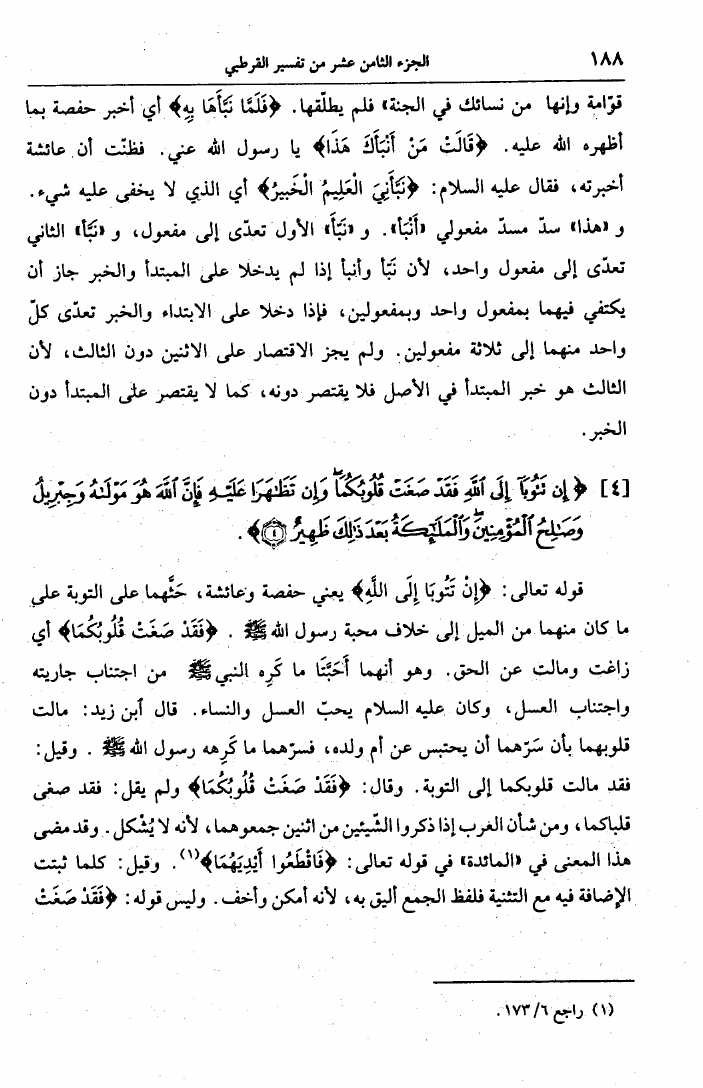 ١٨٨
الجزء الثامن عشر من تفسير القرطبي
قوّامة وإنها من نسائك في الجنة» فلم يطلّقها. ﴿فَلَمَّا نَبَّأَهَا بِهِ﴾ أي أخبر حفصة بما
أظهره الله عليه. ﴿قَالَتْ مَنْ أَنْبَأَكَ هَذَا﴾ يا رسول الله عني. فظنّت أن عائشة
أخبرته، فقال عليه السلام: ﴿نَبَّأَنِيَ الْعَلِيمُ الْخَبِيرُ﴾ أي الذي لا يخفى عليه شيء.
و «هذا» سدّ مسدّ مفعولي «أَنْبَأ». و «نَبَّأ» الأول تعدّى إلى مفعول، و «نَبَّأ» الثاني
تعدّى إلى مفعول واحد، لأن نَبَّأ وأنبأ إذا لم يدخلا على المبتدأ والخبر جاز أن
يكتفي فيهما بمفعول واحد وبمفعولين، فإذا دخلا على الابتداء والخبر تعدّى كلّ
واحد منهما إلى ثلاثة مفعولين. ولم يجز الاقتصار على الاثنين دون الثالث، لأن
الثالث هو خبر المبتدأ في الأصل فلا يقتصر دونه، كما لا يقتصر على المبتدأ دون
الخبر.
[٤] ﴿إِن تَتُوبَآ إِلَى ٱللَّهِ فَقَدْ صَغَتْ قُلُوبُكُمَاۖ وَإِن تَظَٰهَرَا عَلَيْهِ فَإِنَّ ٱللَّهَ هُوَ مَوْلَىٰهُ وَجِبْرِيلُ
وَصَٰلِحُ ٱلْمُؤْمِنِينَۖ وَٱلْمَلَٰٓئِكَةُ بَعْدَ ذَٰلِكَ ظَهِيرٌ ۝٤﴾.
قوله تعالى: ﴿إِنْ تَتُوبَا إِلَى اللَّهِ﴾ يعني حفصة وعائشة، حَثَّهما على التوبة على
ما كان منهما من الميل إلى خلاف محبة رسول الله ﷺ. ﴿فَقَدْ صَغَتْ قُلُوبُكُمَا﴾ أي
زاغت ومالت عن الحق. وهو أنهما أَحَبَّتَا ما كَرِه النبي ﷺ من اجتناب جاريته
واجتناب العسل، وكان عليه السلام يحبّ العسل والنساء. قال ٱبن زيد: مالت
قلوبهما بأن سَرّهما أن يحتبس عن أم ولده، فسرّهما ما كَرِهه رسول الله ﷺ. وقيل:
فقد مالت قلوبكما إلى التوبة. وقال: ﴿فَقَدْ صَغَتْ قُلُوبُكُمَا﴾ ولم يقل: فقد صغى
قلباكما، ومن شأن العرب إذا ذكروا الشّيئين من اثنين جمعوهما، لأنه لا يُشْكل. وقد مضى
هذا المعنى في «المائدة» في قوله تعالى: ﴿فَاقْطَعُوا أَيْدِيَهُمَا﴾(١). وقيل: كلما ثبتت
الإضافة فيه مع التثنية فلفظ الجمع أليق به، لأنه أمكن وأخف. وليس قوله: ﴿فَقَدْ صَغَتْ
(١) راجع ٦/ ١٧٣.